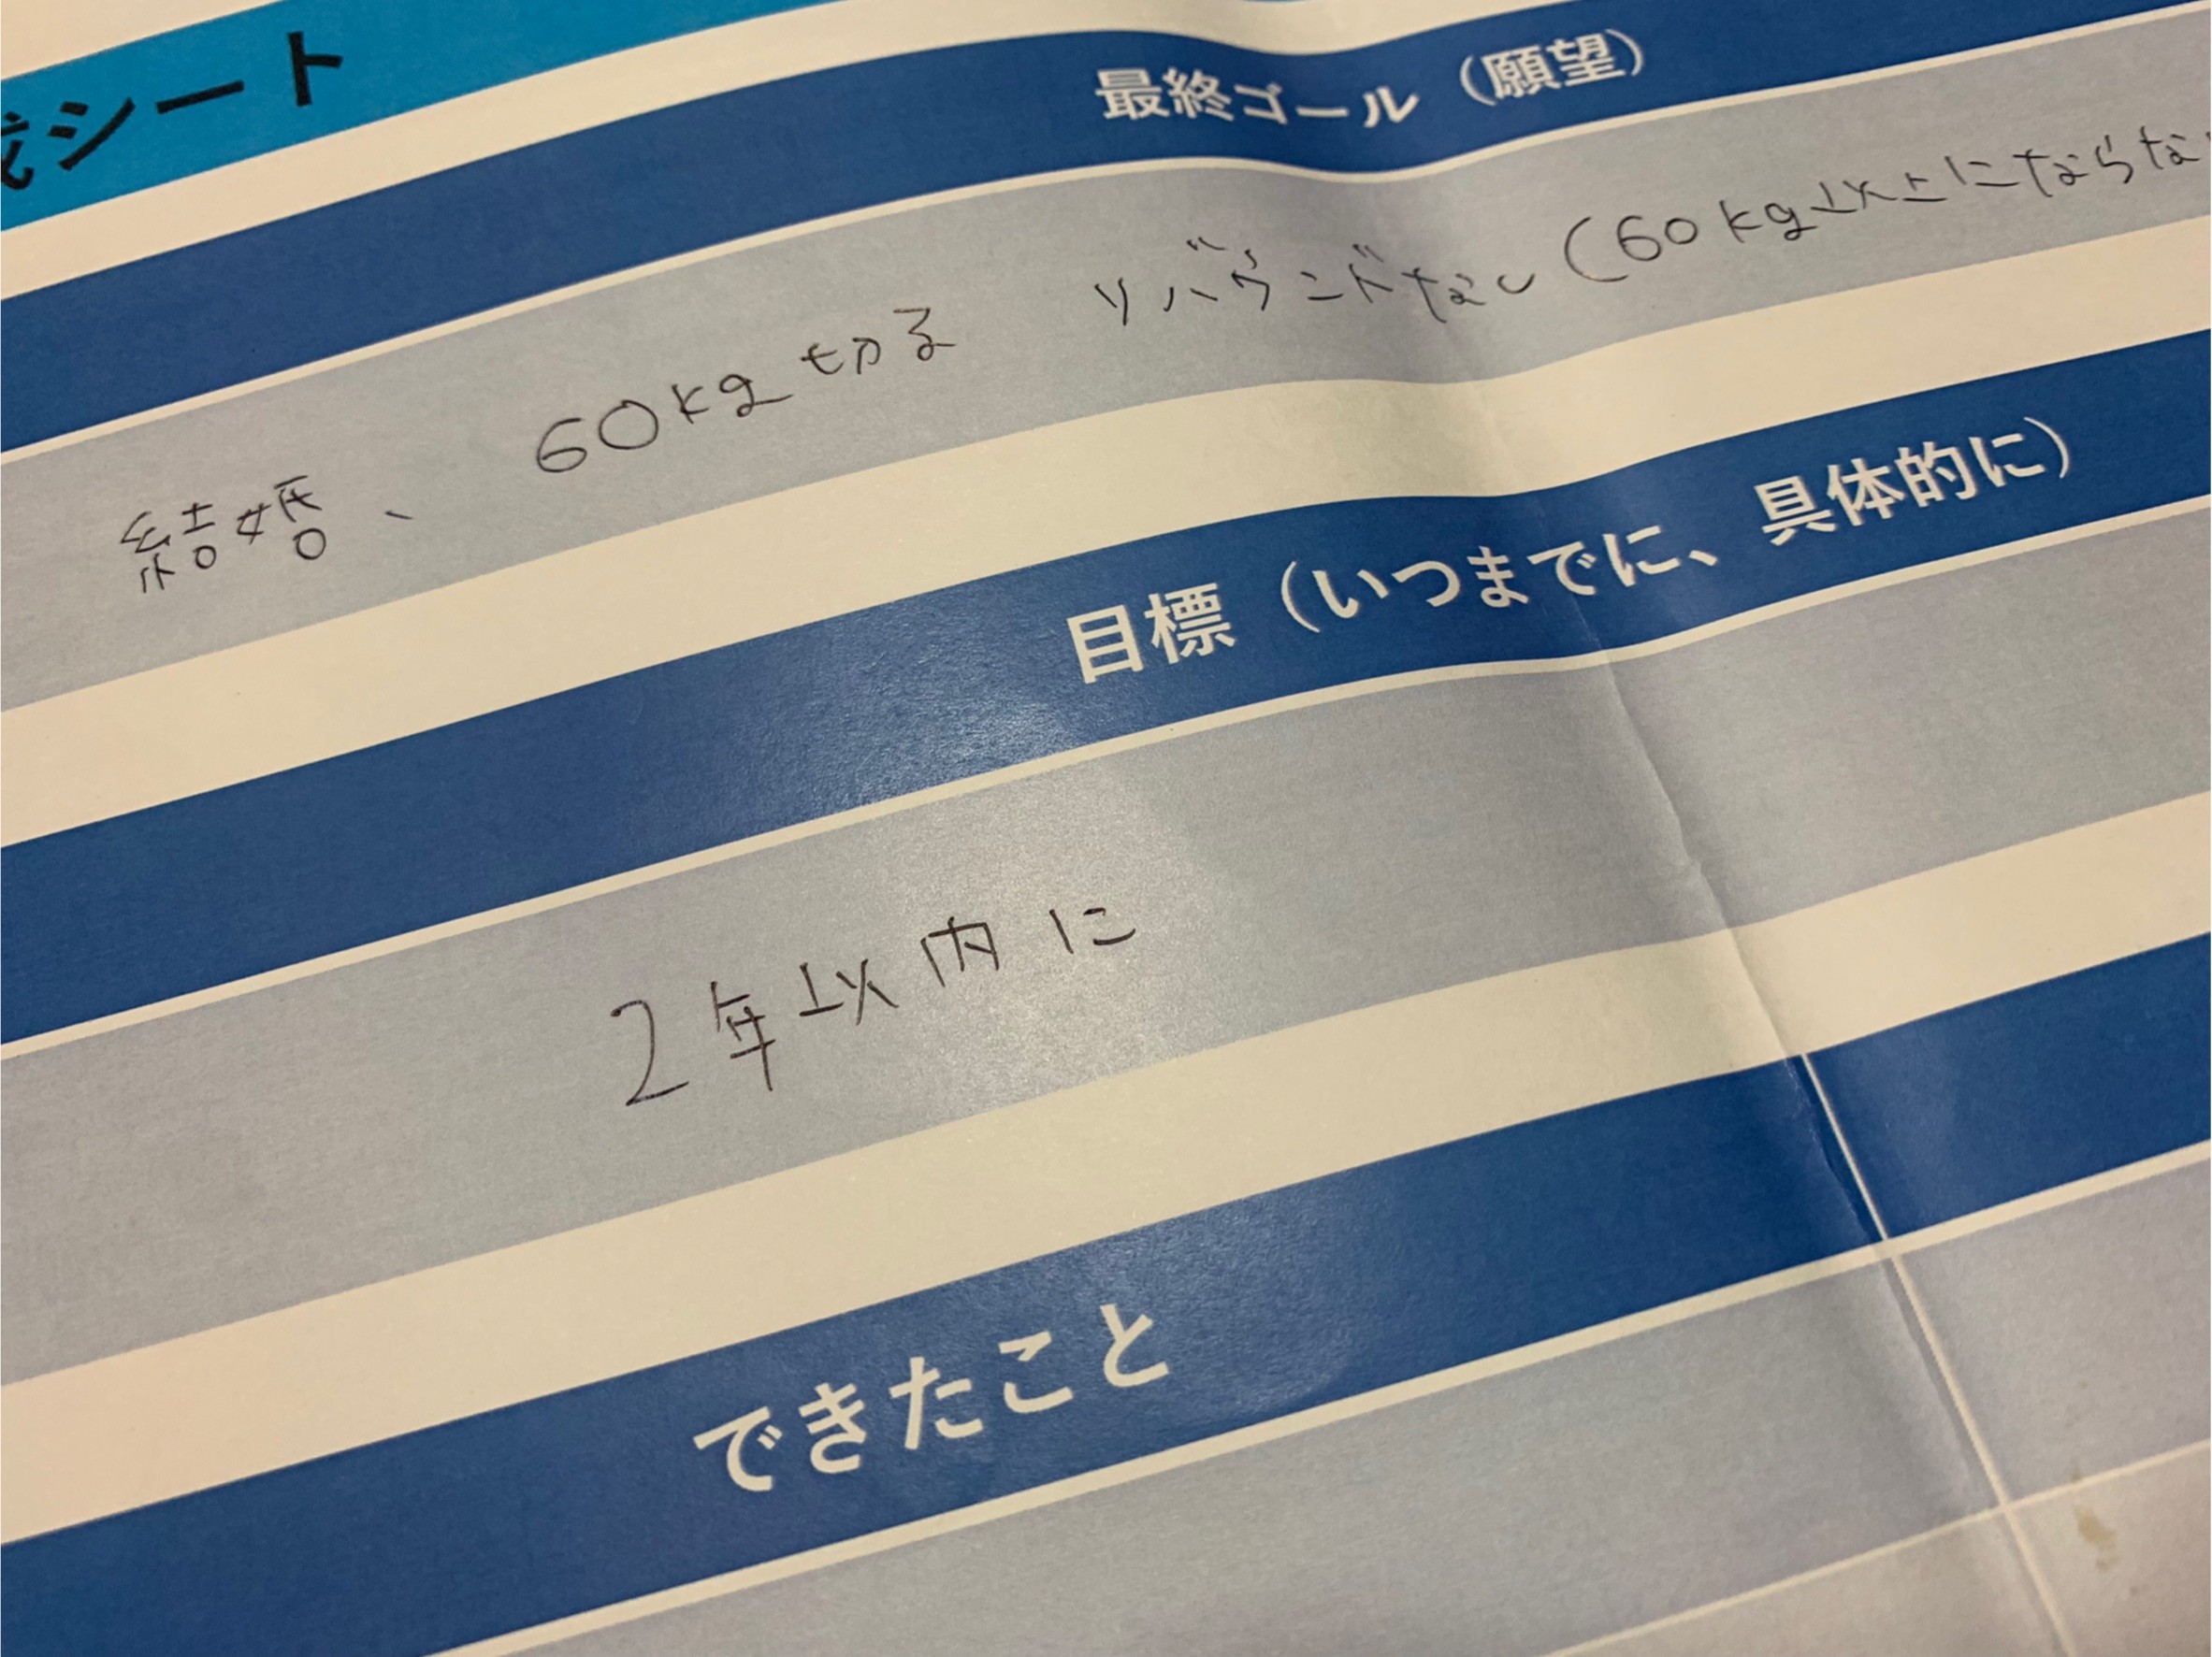 成シート
最終ゴール（願望）
結婚、 60kg切る リバウンドなし（60kg以上にならな
目標（いつまでに、具体的に）
2年以内に
できたこと